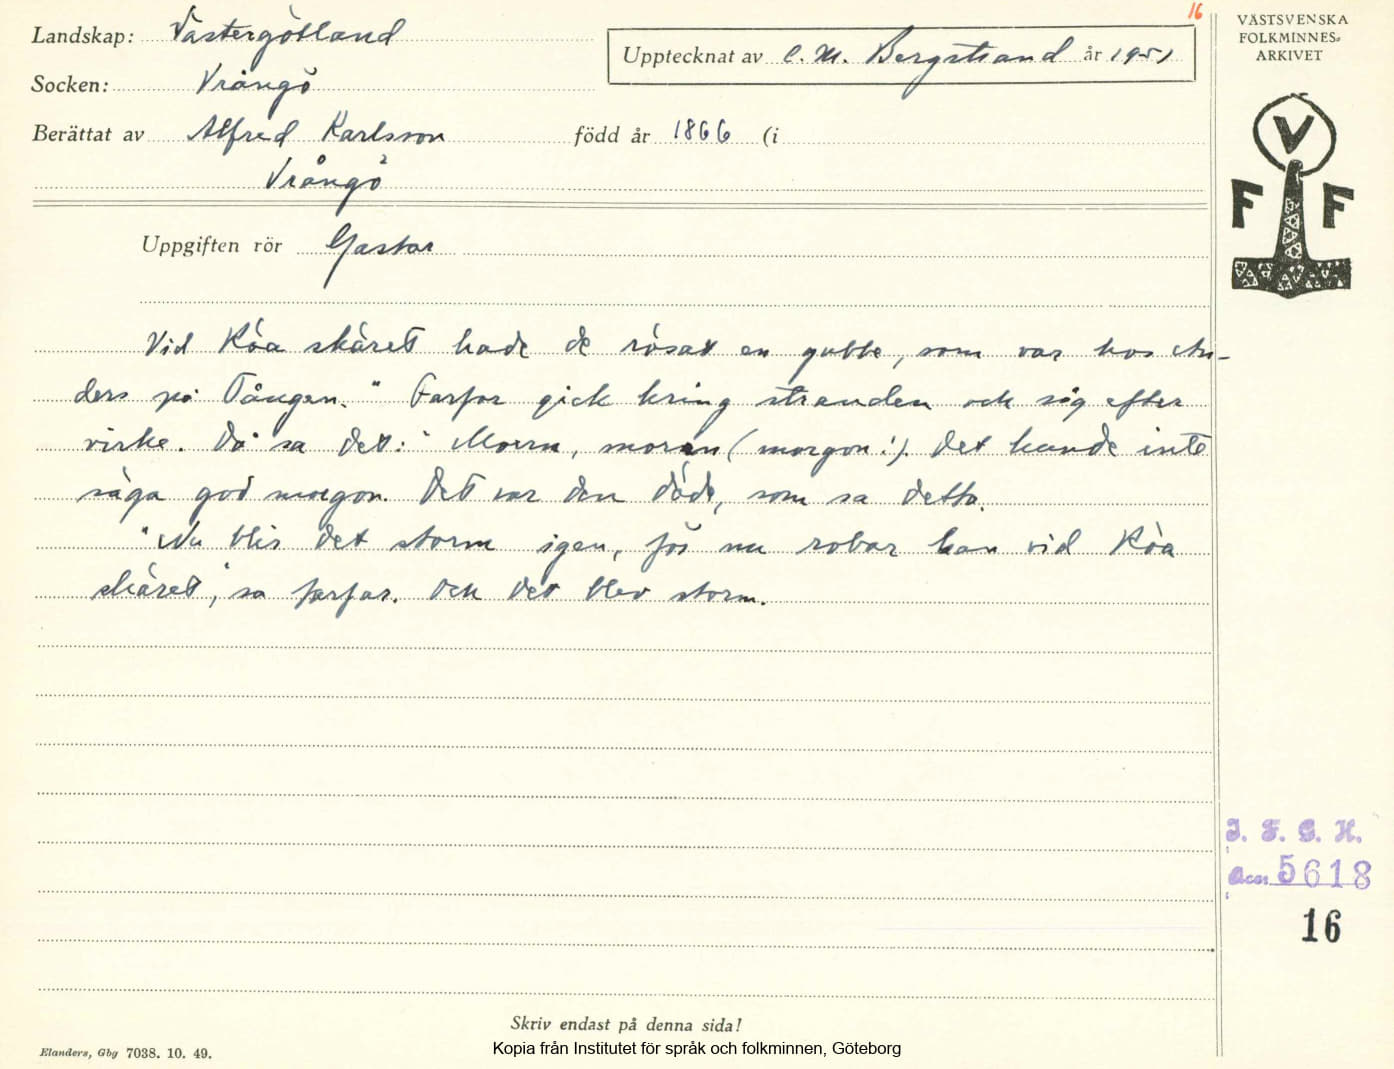 16
Landskap: Västergötland
Upptecknat av C. M. Bergstrand år 1951
Socken: Vrångö
Berättat av Alfred Karlsson född år 1866 (i
Vrångö
Uppgiften rör Gastar
Vid Röa skäret hade de rösat en gubbe, som var hos An-
ders på Tången." Farfar gick kring stranden och såg efter
virke. Då sa det: "Morrn, morrn (morgon!). Det kunde inte
säga god morgon. Det var den döde, som sa detta.
"Nu blir det storm igen, för nu robar han vid Röa
skäret", sa farfar. Och det blev storm.
VÄSTSVENSKA
FOLKMINNES-
ARKIVET
V
F F
I. F. G. H.
Acc. 5618
16
Skriv endast på denna sida!
Elanders, Gbg 7038. 10. 49.
Kopia från Institutet för språk och folkminnen, Göteborg